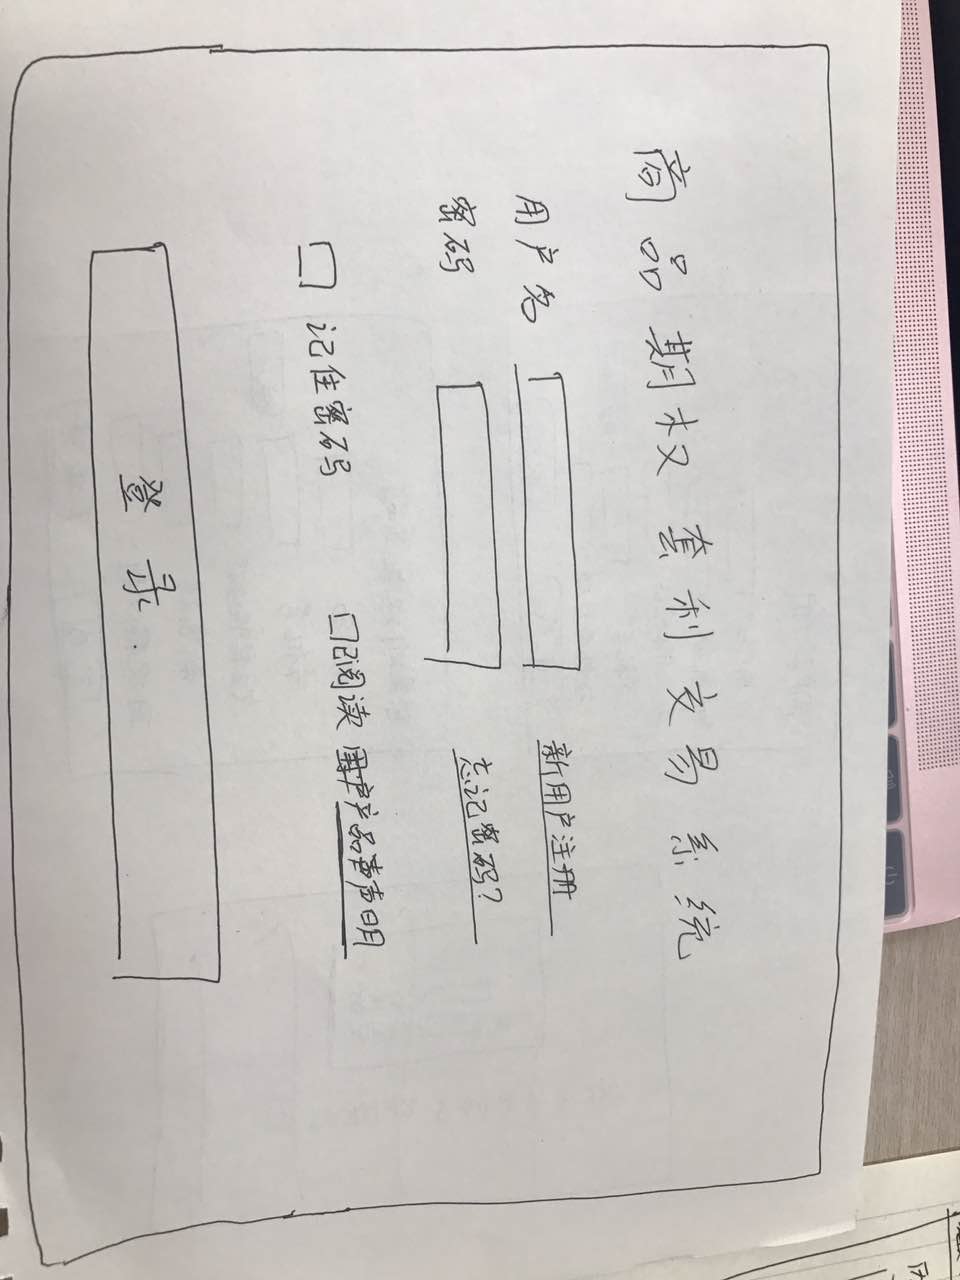 商品期权套利交易系统
用户名 新用户注册
密码 忘记密码?
记住密码 已阅读 产品声明
登录